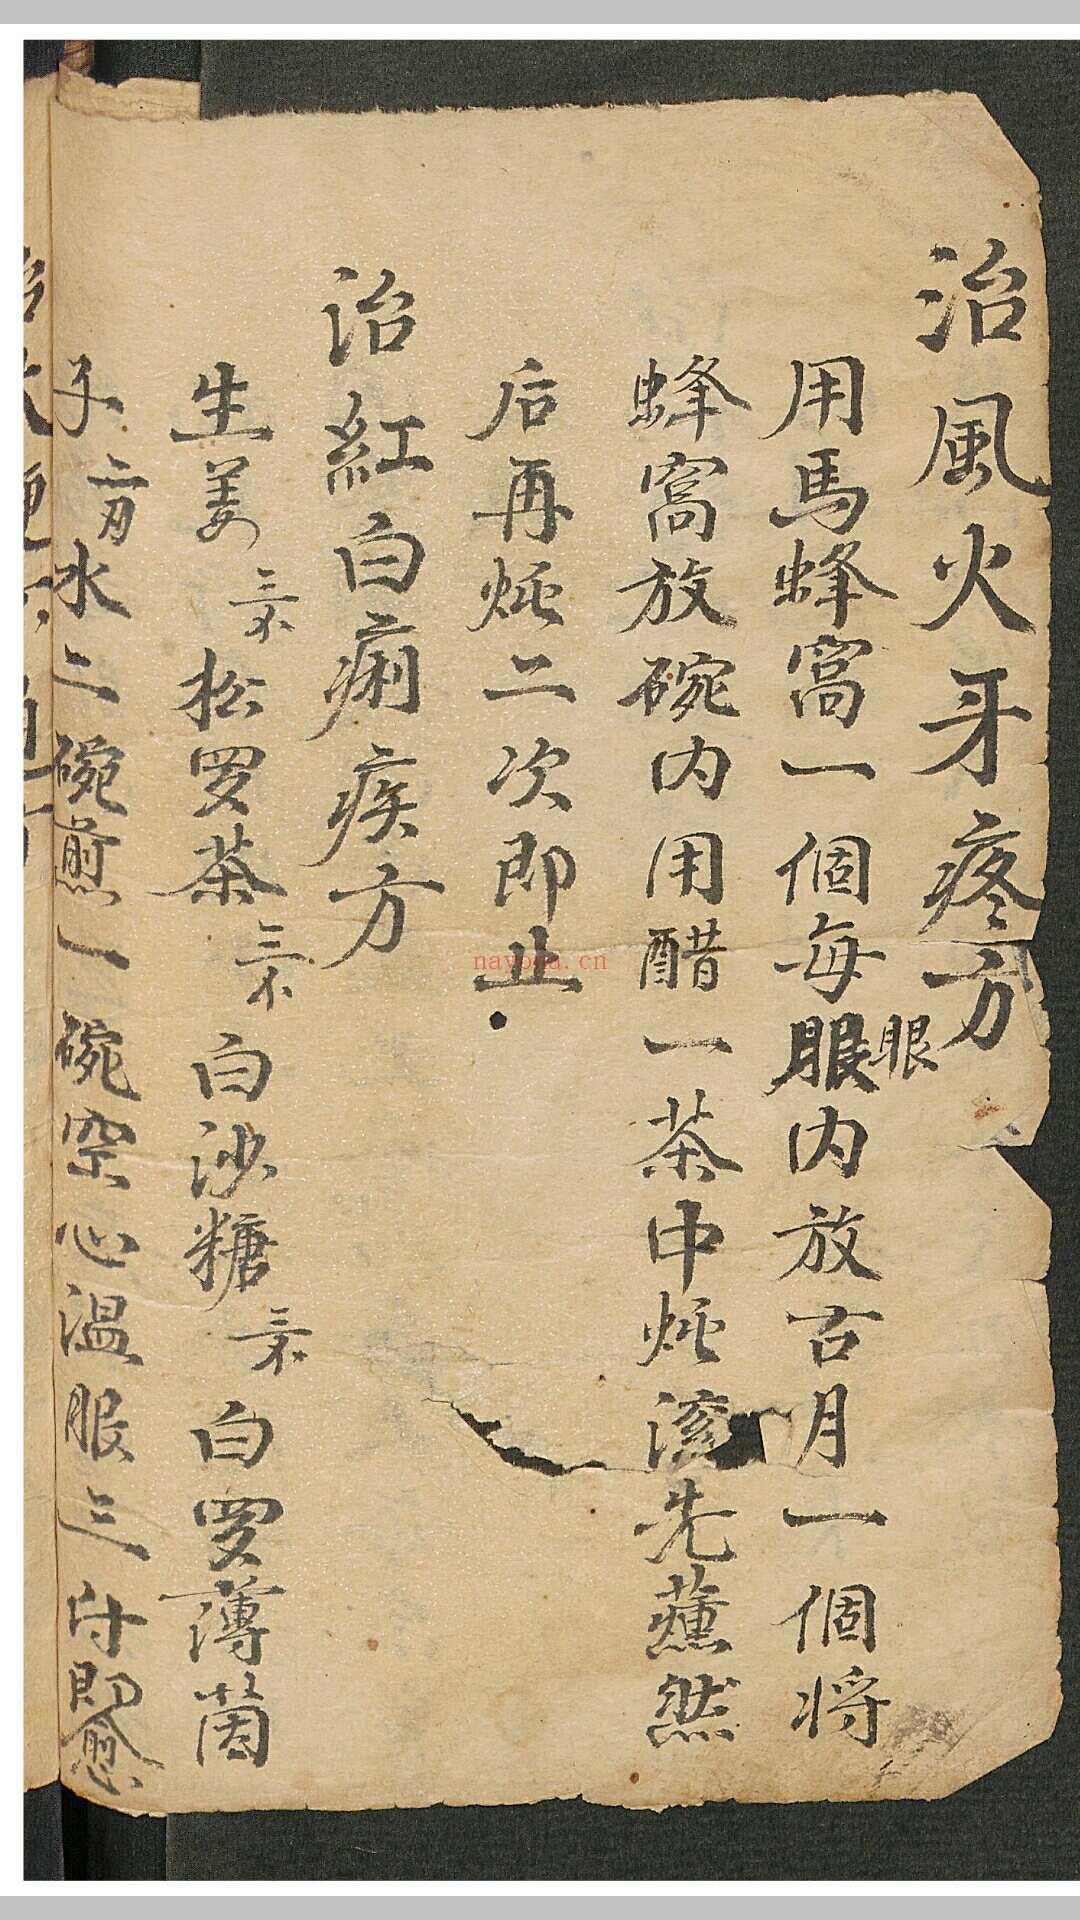 治風火牙疼方
用馬蜂窩一個每服眼内放古月一個将
蜂窩放碗内用醋一茶中炖滚先薰然
后再炖二次即止
治紅白痢疾方
生姜三不松罗茶三不白沙糖三不白罗薄茵
子二刃水二碗煎一碗空心温服三付即愈
nayona.cn